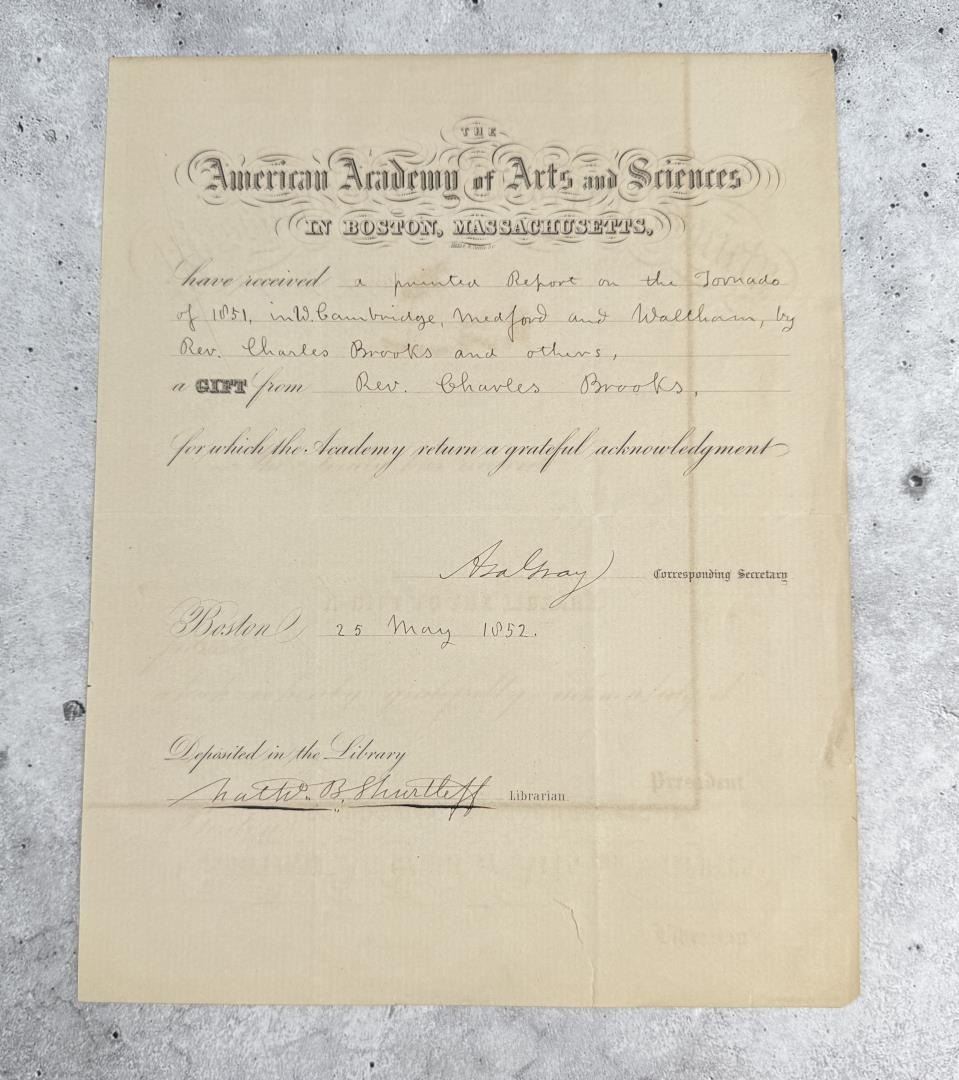 THE
American Academy of Arts and Sciences
IN BOSTON, MASSACHUSETTS,
have received a printed Report on the Tornado
of 1851, in W. Cambridge, Medford and Waltham, by
Rev. Charles Brooks and others,
a GIFT from Rev. Charles Brooks,
for which the Academy return a grateful acknowledgment
Asa Gray Corresponding Secretary
Boston 25 May 1852.
Deposited in the Library
Nathl. B. Shurtleff Librarian
President
Librarian